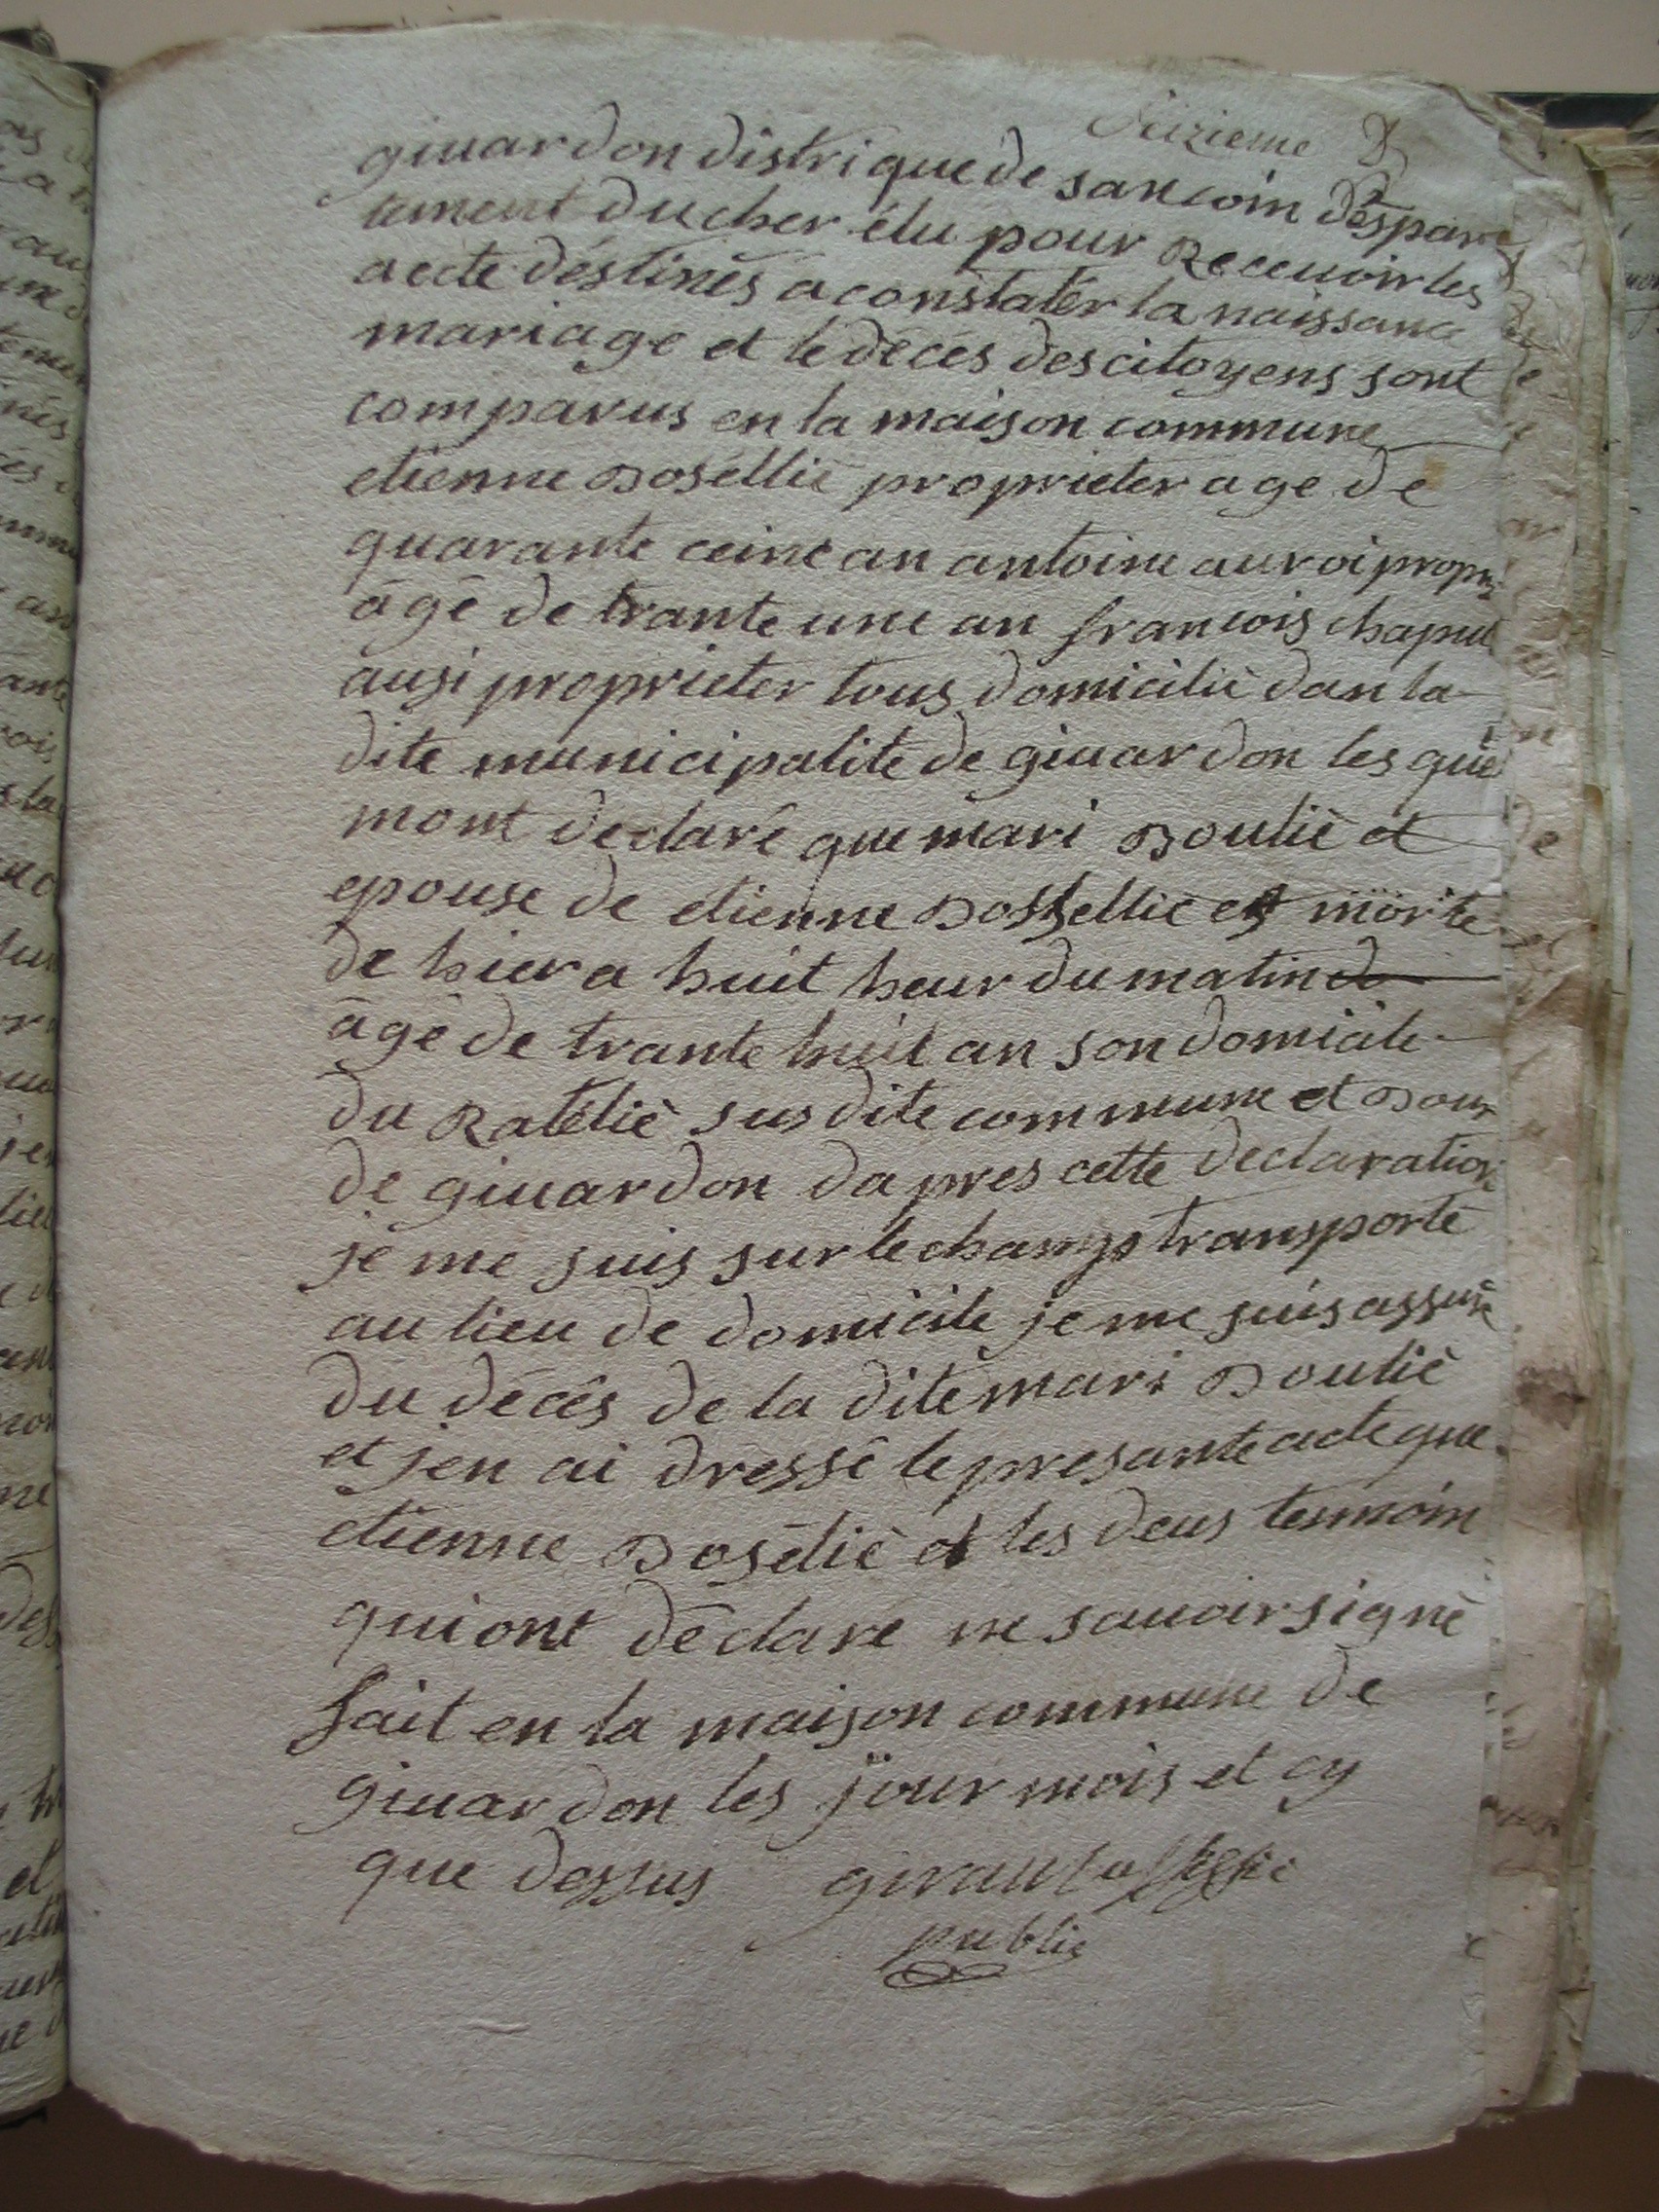 Seizieme
giuardon distrique de sancoin despar
tement du cher élu pour Recevoir les
acte déstinés a constatér la naissance
mariage et le décés des citoyens sont
comparus en la maison commune
etienne Bosellié proprieter age de
quarante ceinc an antoine auroi propri
âgé de trante une an francois chaput
ausi proprieter tous domicilié dan la
dite municipalite de giuardon les quel
mont declaré que mari Boulié et
epouse de etienne Bossellié est morte
de hier a huit heur du matin
âgé de trante huit an son domicile
du Ratélié sus dite commune et Bour
de giuardon dapres cette declaration
je me suis sur le champs transporté
au lieu de domicile je me suis assuré
du décés de la dite mari Boulié
et jen ai dressé le presante acte que
etienne Bosélié et les deus temoin
qui ont déclare ne savoir signé
fait en la maison commune de
giuardon les jour mois et cy
que dessus
public